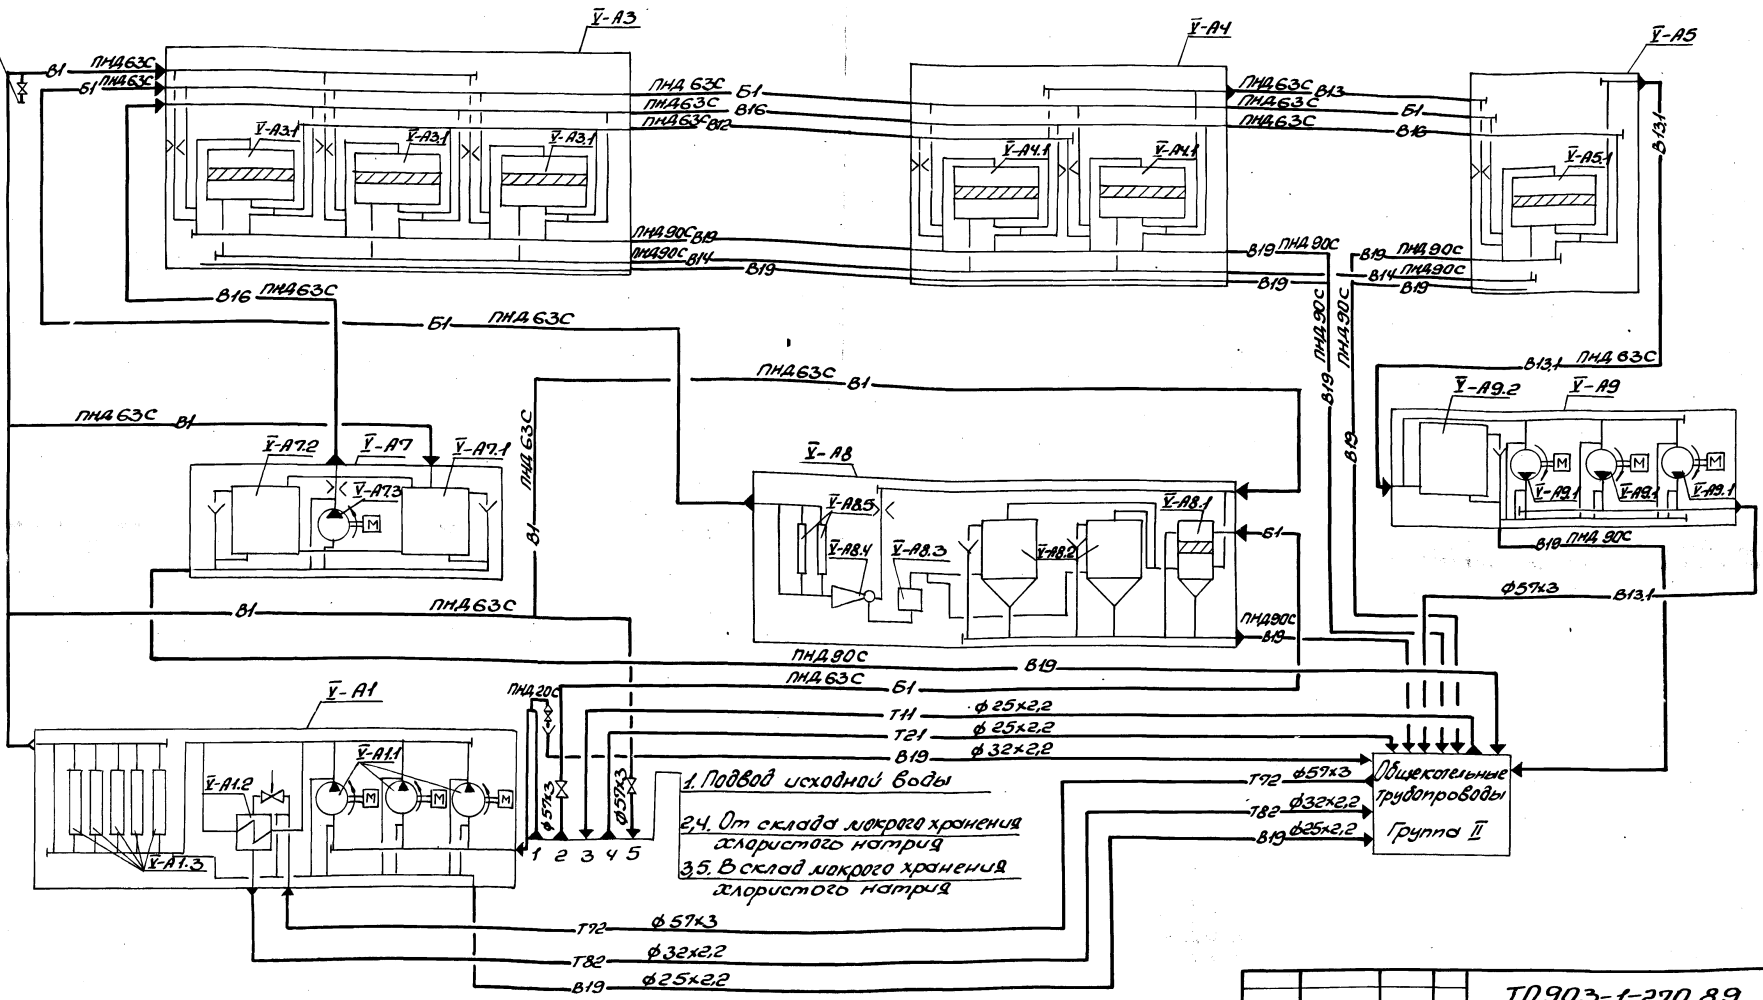 V-А3
V-А4
V-А5
В1 ПНД 63С
Б1 ПНД 63С
ПНД 63С Б1
ПНД 63С В16
ПНД 63С В12
ПНД 63С В13
ПНД 63С Б1
ПНД 63С В16
В13.1
V-А3.1
V-А3.1
V-А3.1
V-А4.1
V-А4.1
V-А5.1
ПНД 90С В19
ПНД 90С В14
В19
В19 ПНД 90С
В19
В19 ПНД 90С
В14 ПНД 90С
В19
В16 ПНД 63С
Б1 ПНД 63С
ПНД 90С
В19
ПНД 90С
В19
В13.1 ПНД 63С
ПНД 63С В1
ПНД 63С В1
ПНД 63С
В1
V-А7.2
V-А7
V-А7.1
V-А7.3
М
V-А8
V-А8.5
V-А8.4
V-А8.3
V-А8.2
V-А8.1
Б1
V-А9.2
V-А9
М
М
М
V-А9.1
V-А9.1
V-А9.1
В19 ПНД 90С
ф57х3 В13.1
В1 ПНД 63С
ПНД 90С
В19
ПНД 90С В19
ПНД 63С Б1
V-А1
ПНД 20С
Т11 ф25х2,2
Т21 ф25х2,2
В19 ф32х2,2
V-А1.1
V-А1.2
V-А1.3
М
М
М
ф57х3
ф57х3
1 2 3 4 5
1. Подвод исходной воды
2,4. От склада мокрого хранения
хлористого натрия
3,5. В склад мокрого хранения
хлористого натрия
Т72 ф57х3
Т82 ф32х2,2
В19 ф25х2,2
Общекотельные
трубопроводы
Группа II
Т72 ф57х3
Т82 ф32х2,2
В19 ф25х2,2
ТП903-1-270.89